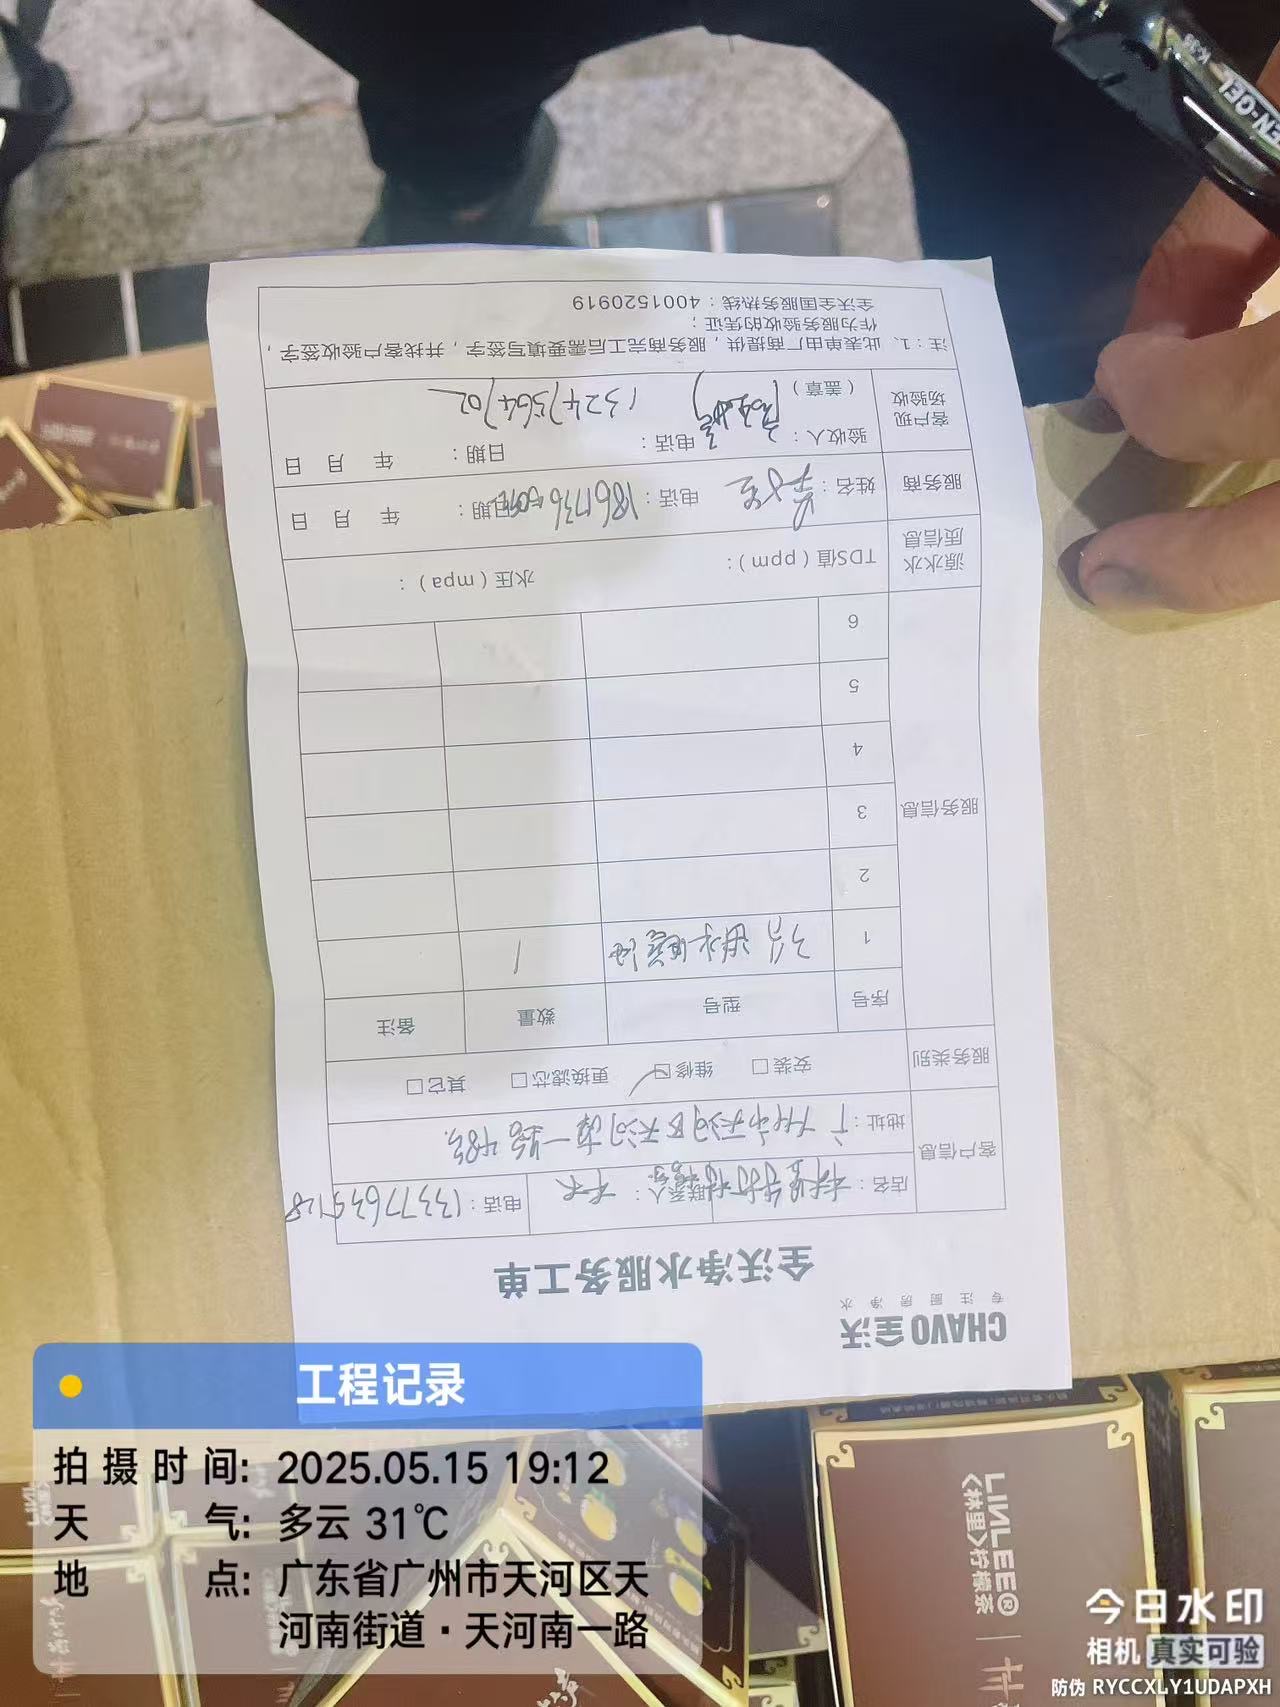 CHAVO 全沃
专注厨房净水
全沃净水服务工单
客户信息
店名： 联系人： 电话：
地址：广州市天河区天河南一路48号
服务类别
安装□ 维修☑ 更换滤芯□ 其它□
服务信息
序号 型号 数量 备注
1 1
2
3
4
5
6
源水水质信息
TDS值（ppm）： 水压（mpa）：
服务商
姓名： 电话： 日期： 年 月 日
客户现场验收
验收人： 电话：13247564702 日期： 年 月 日
（盖章）
注：1、此表单由厂商提供，服务商完工后需要填写签字，并找客户验收签字，
作为服务验收的凭证；
全沃全国服务热线：4001520919
K-35
EN-GEL
LINLEE®
《林里》柠檬茶
工程记录
拍摄时间: 2025.05.15 19:12
天气: 多云 31℃
地点: 广东省广州市天河区天
河南街道·天河南一路
今日水印
相机 真实可验
防伪 RYCCXLY1UDAPXH